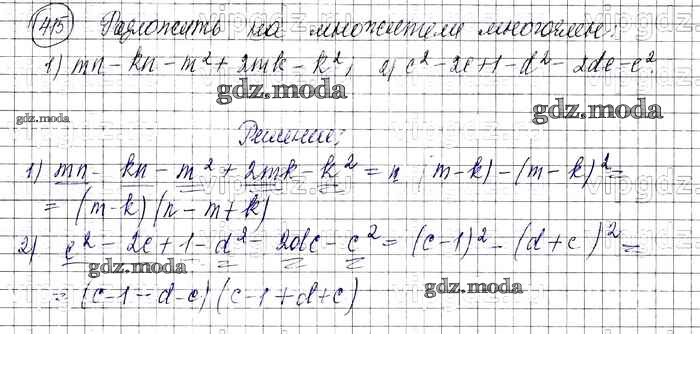 415 Разложить на множители многочлен:
1) mn - kn - m² + 2mk - k²; 2) c² - 2c + 1 - d² - 2de - e².
gdz.moda
gdz.moda
gdz.moda
Решение:
1) mn - kn - m² + 2mk - k² = n (m-k) - (m-k)² =
= (m-k) (n - m + k)
2) c² - 2c + 1 - d² - 2de - e² = (c-1)² - (d+e)² =
gdz.moda
gdz.moda
= (c-1-d-e) (c-1+d+e)